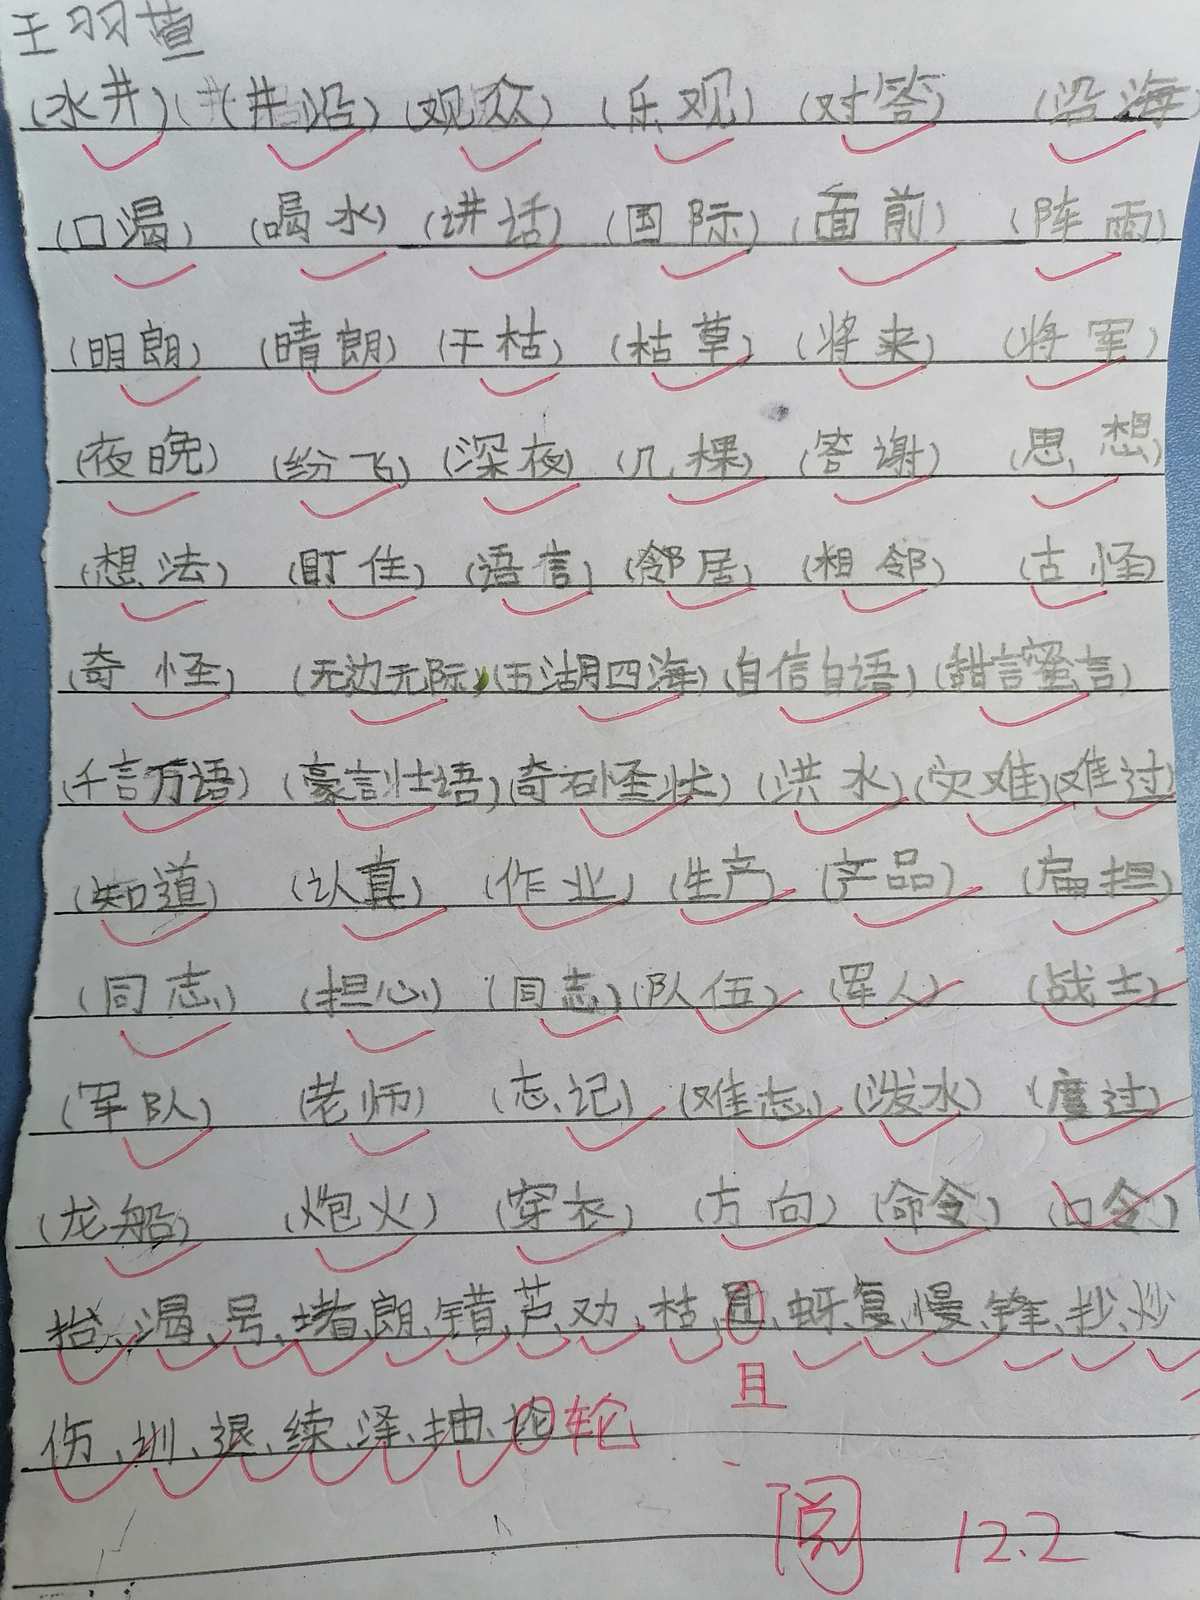 王羽萱
(水井)(井沿)(观众)(乐观)(对答)(沿海
(口渴)(喝水)(讲话)(国际)(面前)(阵雨)
(明朗)(晴朗)(干枯)(枯草)(将来)(将军)
(夜晚)(纷飞)(深夜)(几棵)(答谢)(思想)
(想法)(盯住)(语信)(邻居)(相邻)(古怪)
(奇怪)(无边无际)(五湖四海)(自信自语)(甜言蜜言)
(千言万语)(豪言壮语)(奇石怪状)(洪水)(灾难)(难过)
(知道)(认真)(作业)(生产)(产品)(扁担)
(同志)(担心)(同志)(队伍)(军人)(战士)
(军队)(老师)(忘记)(难忘)(泼水)(度过)
(龙船)(炮火)(穿衣)(方向)(命令)(口令)
抬、渴、号、堵、朗、错、芦、劝、枯、蚜、复、慢、锋、抄、炒
且
伤、训、退、续、泽、抽、轮
阅 12.2